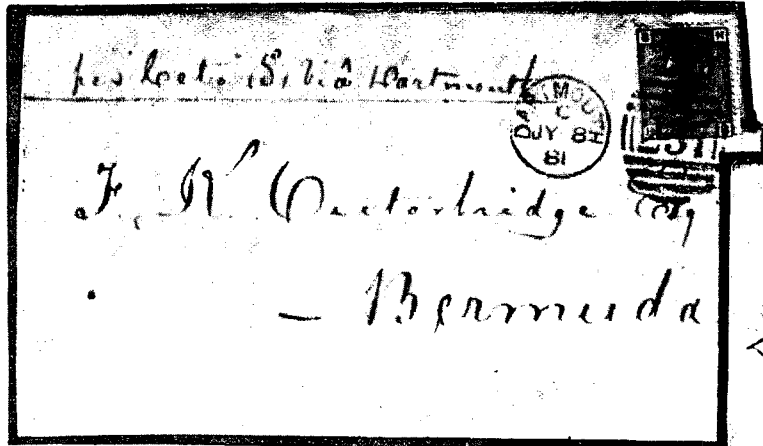 per viâ Dartmouth
DARTMOUTH
C
JY 8
81
F. R. Outerbridge Esq
— Bermuda